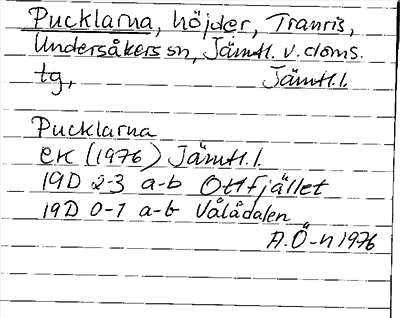 Pucklarna, höjder, Tranris,
Undersåkers sn, Jämtl. v. doms.
tg, Jämtl. l.
Pucklarna
ek (1976) Jämtl. l.
19D 2-3 a-b Ottfjället
19D 0-1 a-b Vålådalen
A.Ö-n 1976